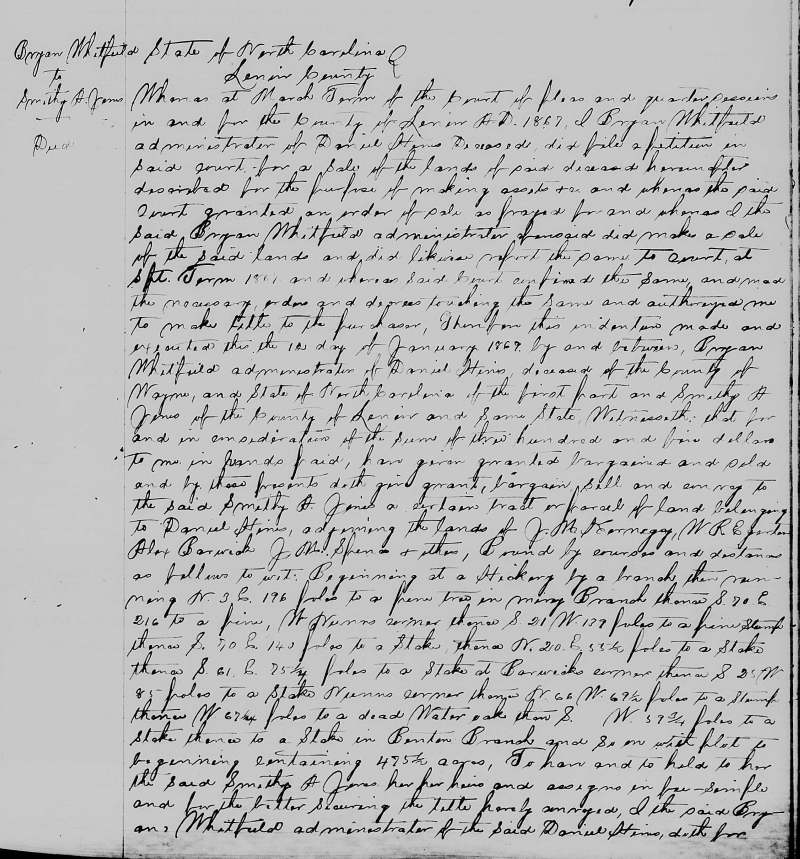 Bryan Whitfield State of North Carolina
to Lenoir County
Smithy A. Jones Whereas at March Term of the Court of pleas and quarter sessions
Deed in and for the County of Lenoir A.D. 1867, I Bryan Whitfield
administrator of Daniel Hines Deceased, did file a petition in
Said court, for a Sale of the lands of said deceased hereinafter
described for the purpose of making assets +c and whereas the said
Court granted an order of sale as prayed for and whereas I the
Said Bryan Whitfield administrator aforesaid did make a sale
of the said lands and did likewise report the same to Court, at
Spt. Term and whereas Said Court confirmed the Same, and made
the necessary orders and decrees touching the Same and authorized me
to make title to the purchaser, Therefore this indenture made and
executed this the 12 day of January 1869 by and between, Bryan
Whitfield administrator of Daniel Hines, deceased of the County of
Wayne, and State of North Carolina of the first part and Smithy A
Jones of the County of Lenoir and Same State, Witnesseth: that for
and in consideration of the sum of three hundred and five dollars
to me in hands paid, have given granted bargained and sold
and by these presents doth give grant, bargain, sell and convey to
the said Smithy A. Jones a certain tract or parcel of land belonging
to Daniel Hines, adjoining the lands of J. M. Kornegay, W R
Alex Barwick J. M. Spence + others, Bound by courses and distances
as follows to wit: Beginning at a Hickory by a branch, then run-
ning N. 3 E. 196 poles to a pine tree in miery Branch thence S. 70 E
216 to a pine, W Nunns corner thence S 21 W 139 poles to a pine Stump
thence S. 70 E 140 poles to a Stake, thence N. 20 E 53½ poles to a Stake
thence S. 61. E. 75¼ poles to a Stake at Barwicks corner thence S 25 W
85 poles to a Stake Nunns corner thence N 66 W 69½ poles to a Stump
thence W 67¼ poles to a dead Water oak then S. W. 59¾ poles to a
Stake thence to a Stake in Benton Branch and So on with plot to
beginning containing 475½ acres, To have and to hold to her
the Said Smithy A Jones her her heirs and assigns in fee-simple
and for the better Securing the title hereby conveyed, I the said Bry
an Whitfield administrator of the Said Daniel Hines, doth for